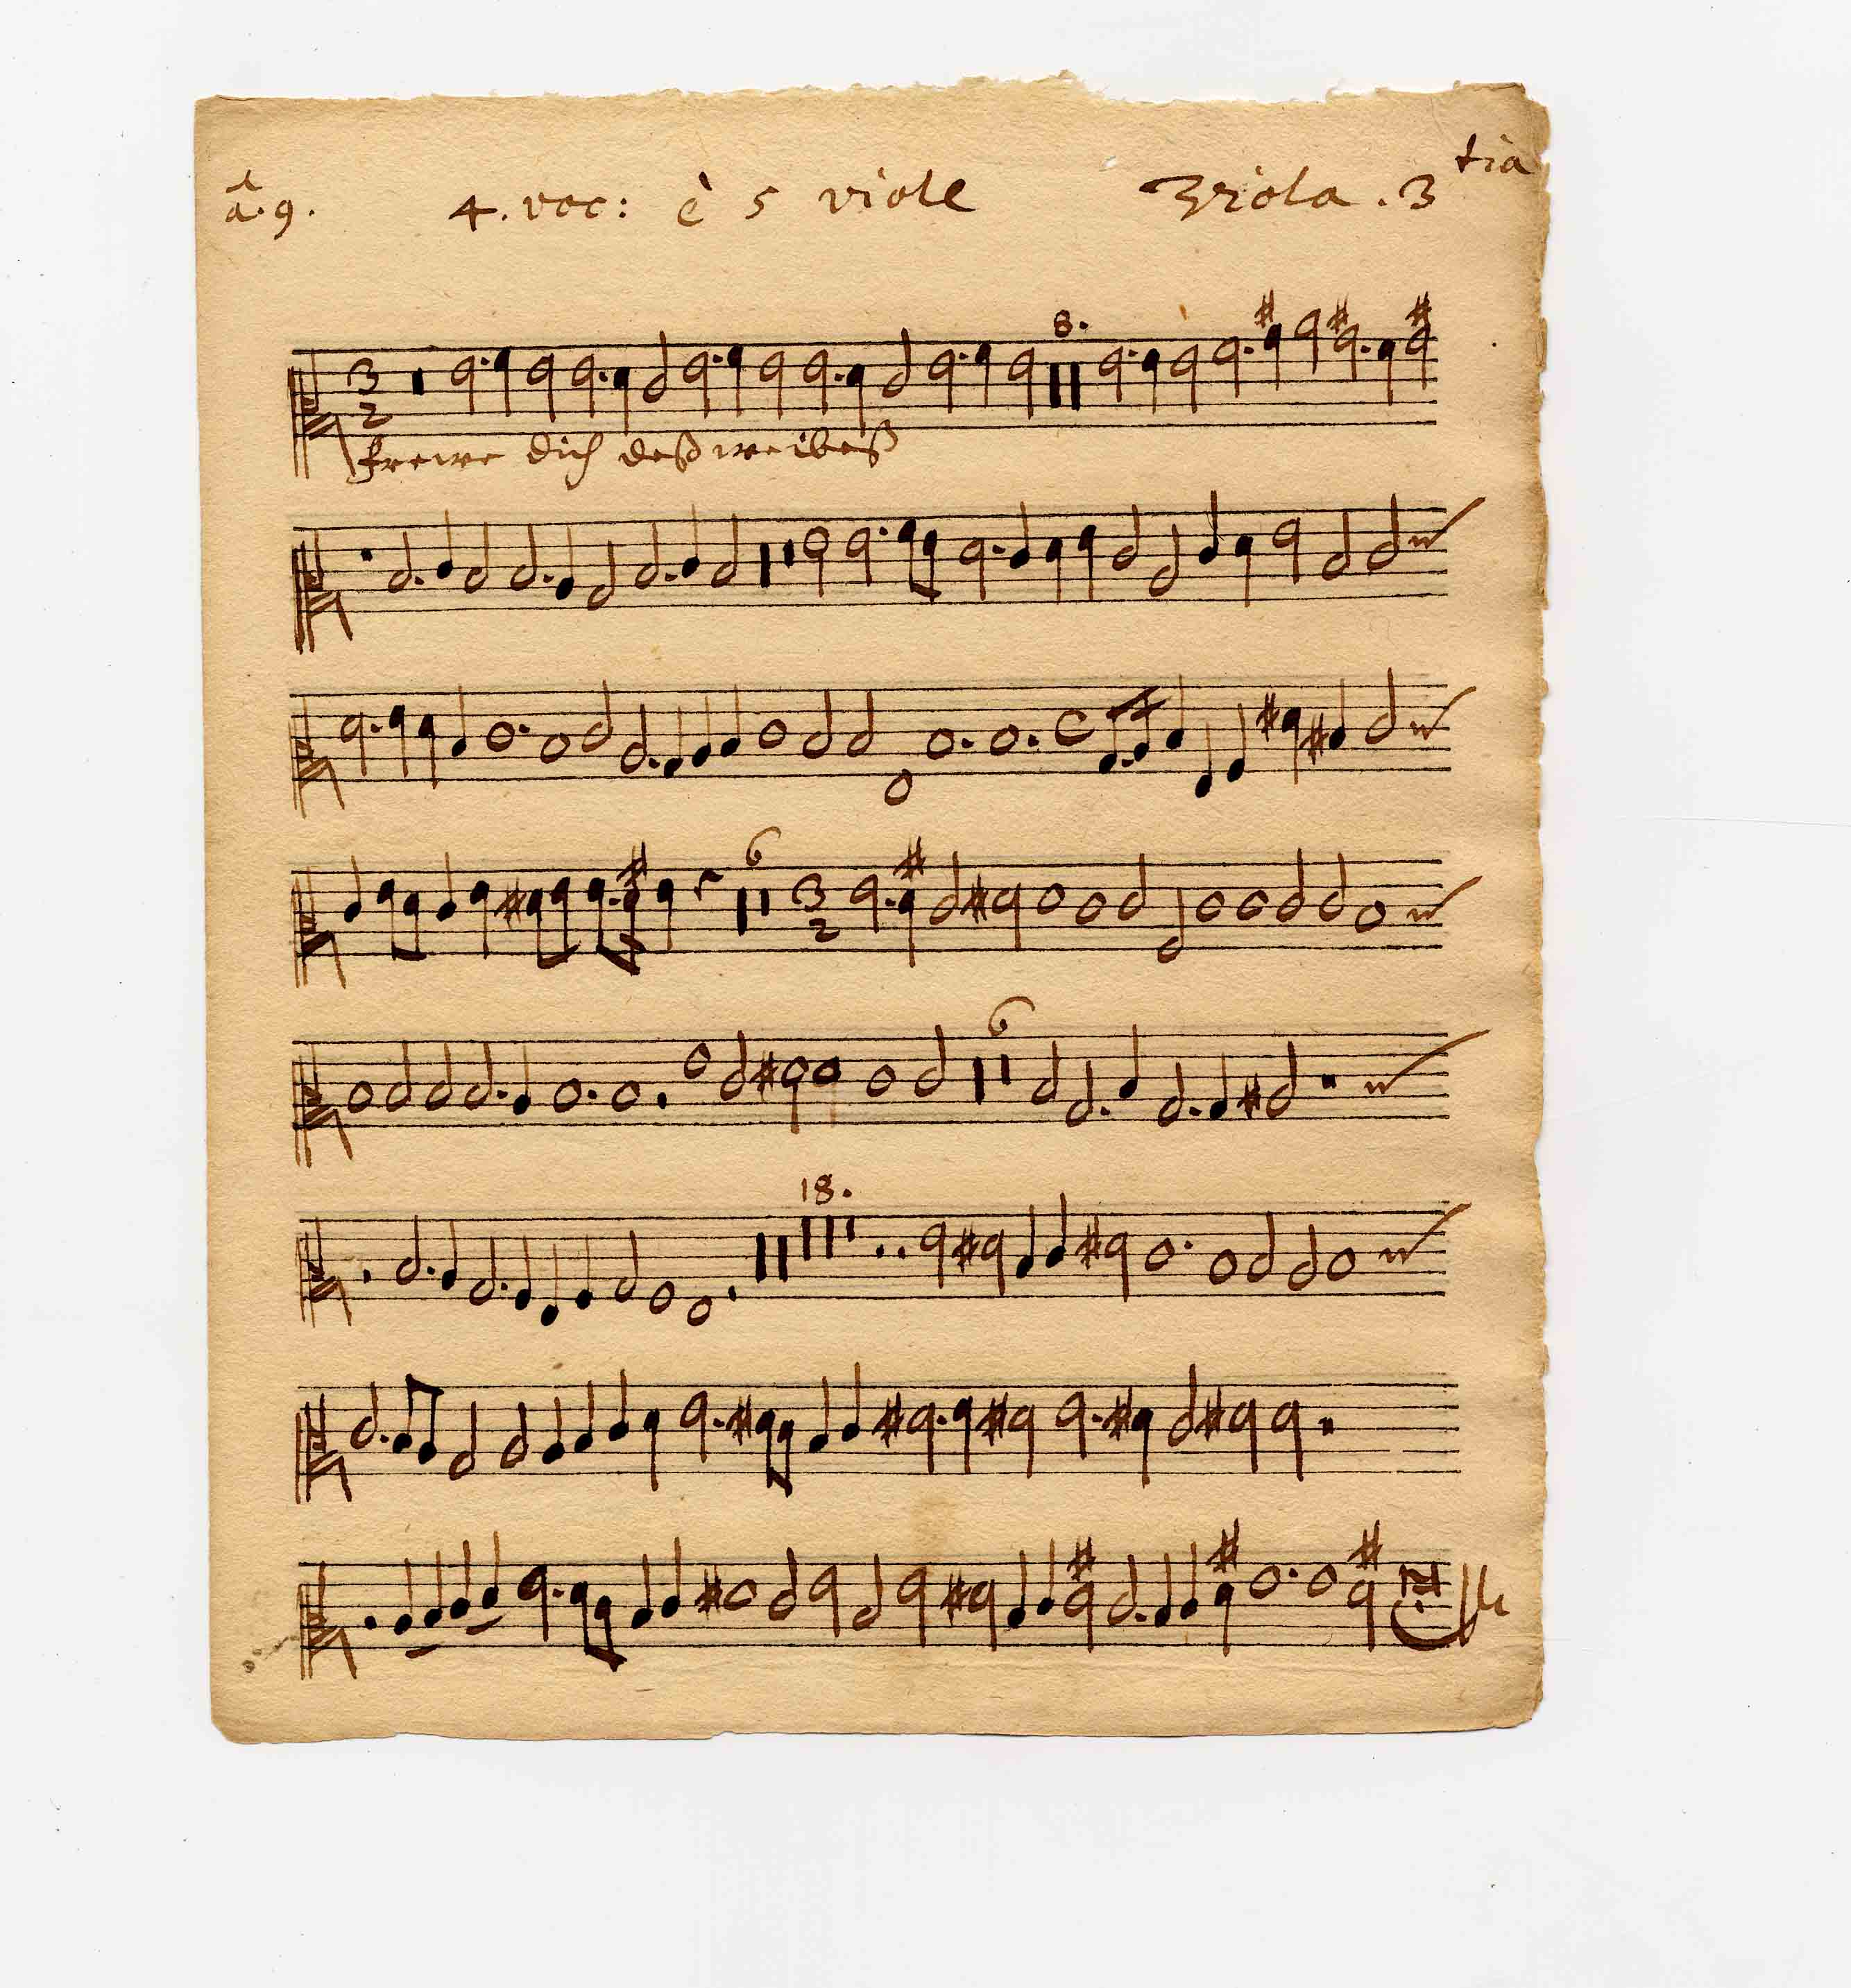 à.9. 4. voc: è 5 viole Viola. 3 tia
8.
3
2
frewe dich deß weibeß
C
6
3
2
6
18.